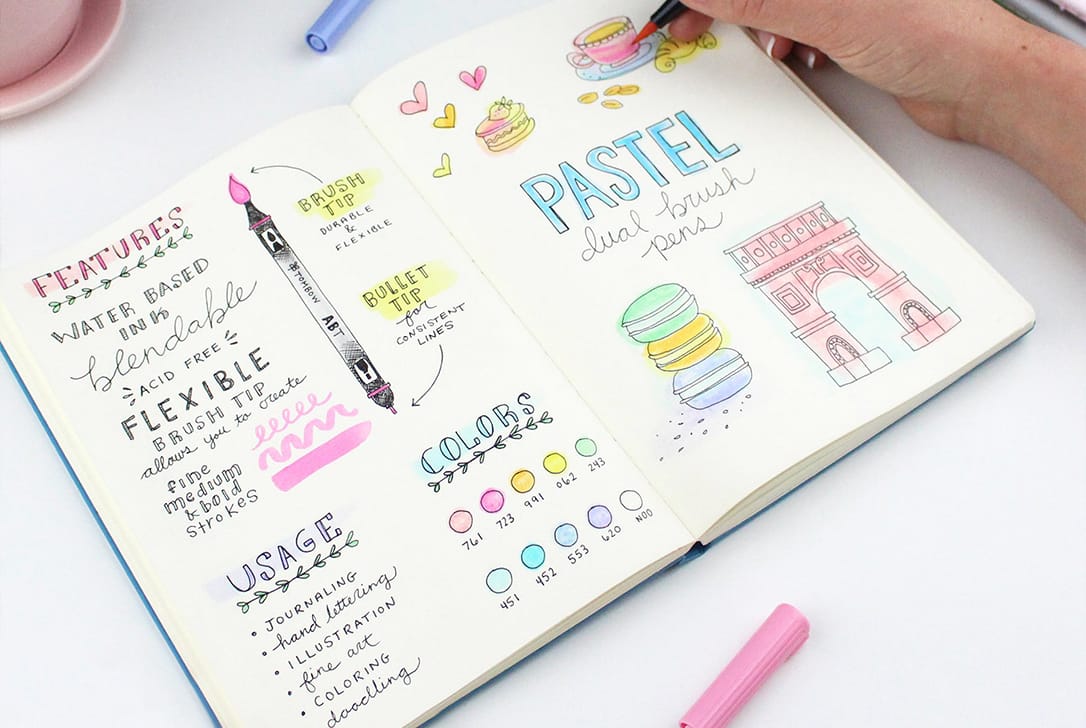 FEATURES
WATER BASED
INK
blendable
ACID FREE
FLEXIBLE
BRUSH TIP
allows you to create
fine
medium
& bold
strokes
USAGE
• JOURNALING
• hand lettering
• ILLUSTRATION
• fine art
• COLORING
• doodling
BRUSH
TIP
DURABLE
&
FLEXIBLE
TOMBOW
ABT
BULLET
TIP
for
CONSISTENT
LINES
COLORS
761 723 991 062 243
451 452 553 620 N00
PASTEL
dual brush
pens